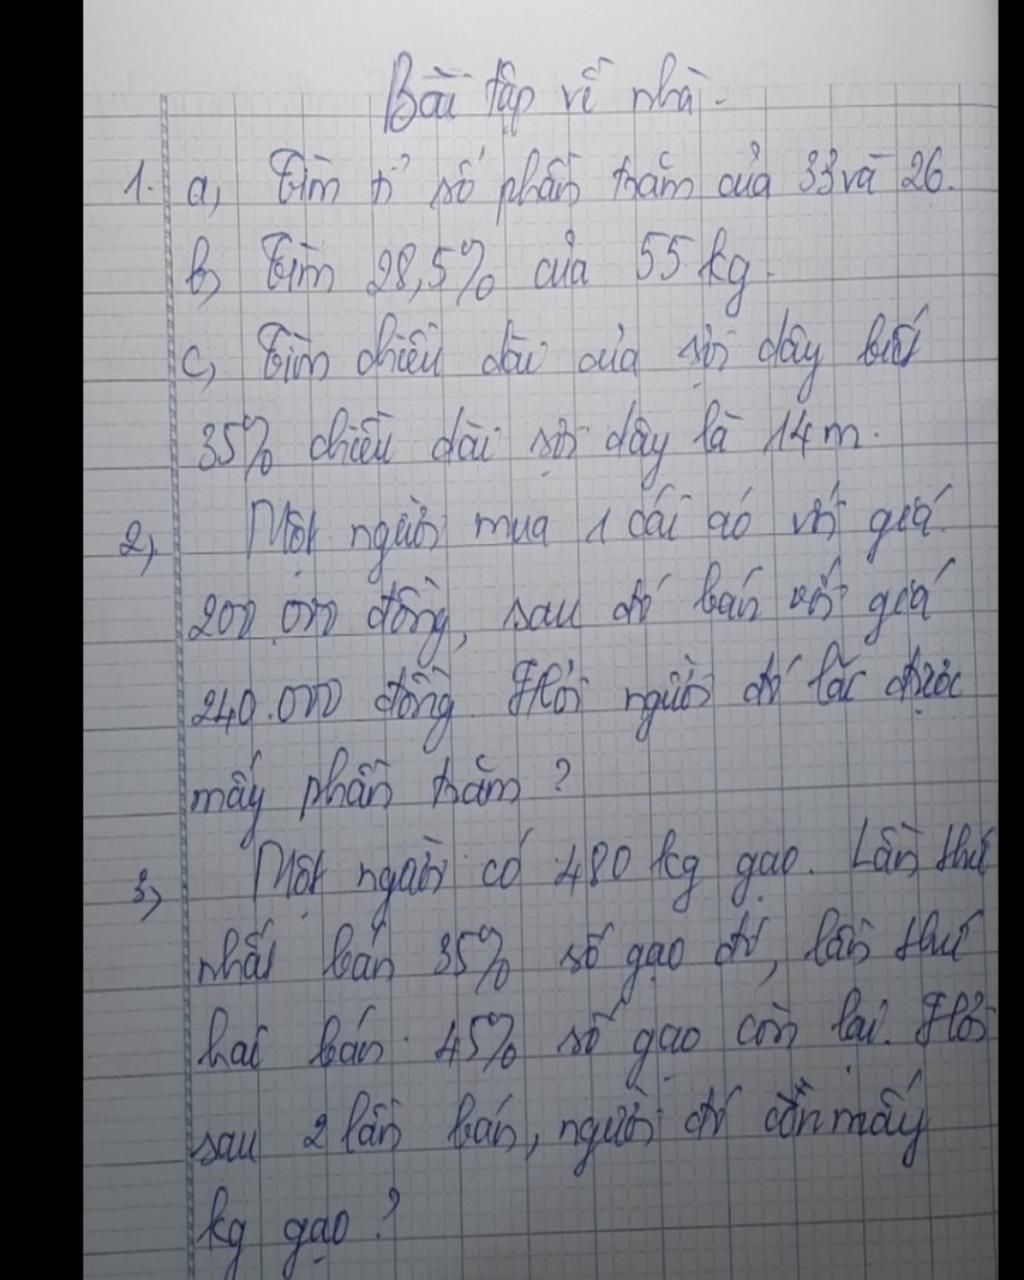 Bài tập về nhà.
1. a, Tìm tỉ số phần trăm của 33 và 26.
b, Tìm 28,5% của 55 kg.
c, Tìm chiều dài của sợi dây biết
35% chiều dài sợi dây là 14 m.
2, Một người mua 1 cái áo với giá
200.000 đồng, sau đó bán với giá
240.000 đồng. Hỏi người đó lãi được
mấy phần trăm ?
3, Một người có 480 kg gạo. Lần thứ
nhất bán 35% số gạo đó, lần thứ
hai bán 45% số gạo còn lại. Hỏi
sau 2 lần bán, người đó còn mấy
kg gạo ?